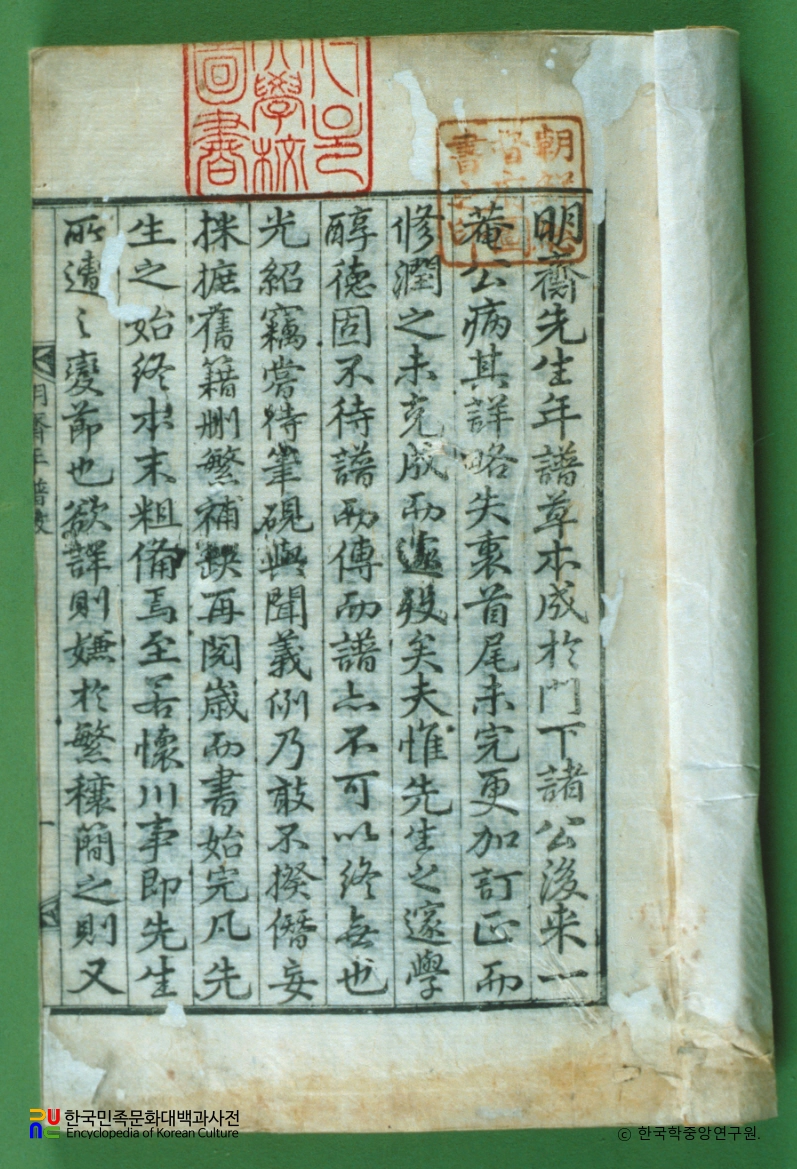 明齋先生年譜草本成於門下諸公後來一
菴公病其詳略失衷首尾未完更加訂正而
修潤之未克成而遽歿矣夫惟先生之邃學
醇德固不待譜而傳而譜亦不可以終無也
光紹竊嘗侍筆硯與聞義例乃敢不揆僭妄
採摭舊籍刪繁補缺再閱歲而書始完凡先
生之始終本末粗備焉至若懷川事卽先生
所遭之變節也欲詳則嫌於繁穰簡之則又
明齋年譜跋
一
大學校
圖書
朝鮮
한국민족문화대백과사전
Encyclopedia of Korean Culture
© 한국학중앙연구원.